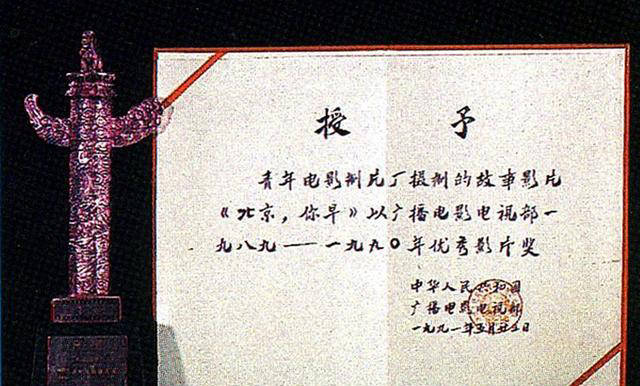 授 予
青年电影制片厂摄制的故事影片
《北京，你早》以广播电影电视部一
九八九——一九九〇年优秀影片奖
中华人民共和国
广播电影电视部
一九九一年五月廿三日